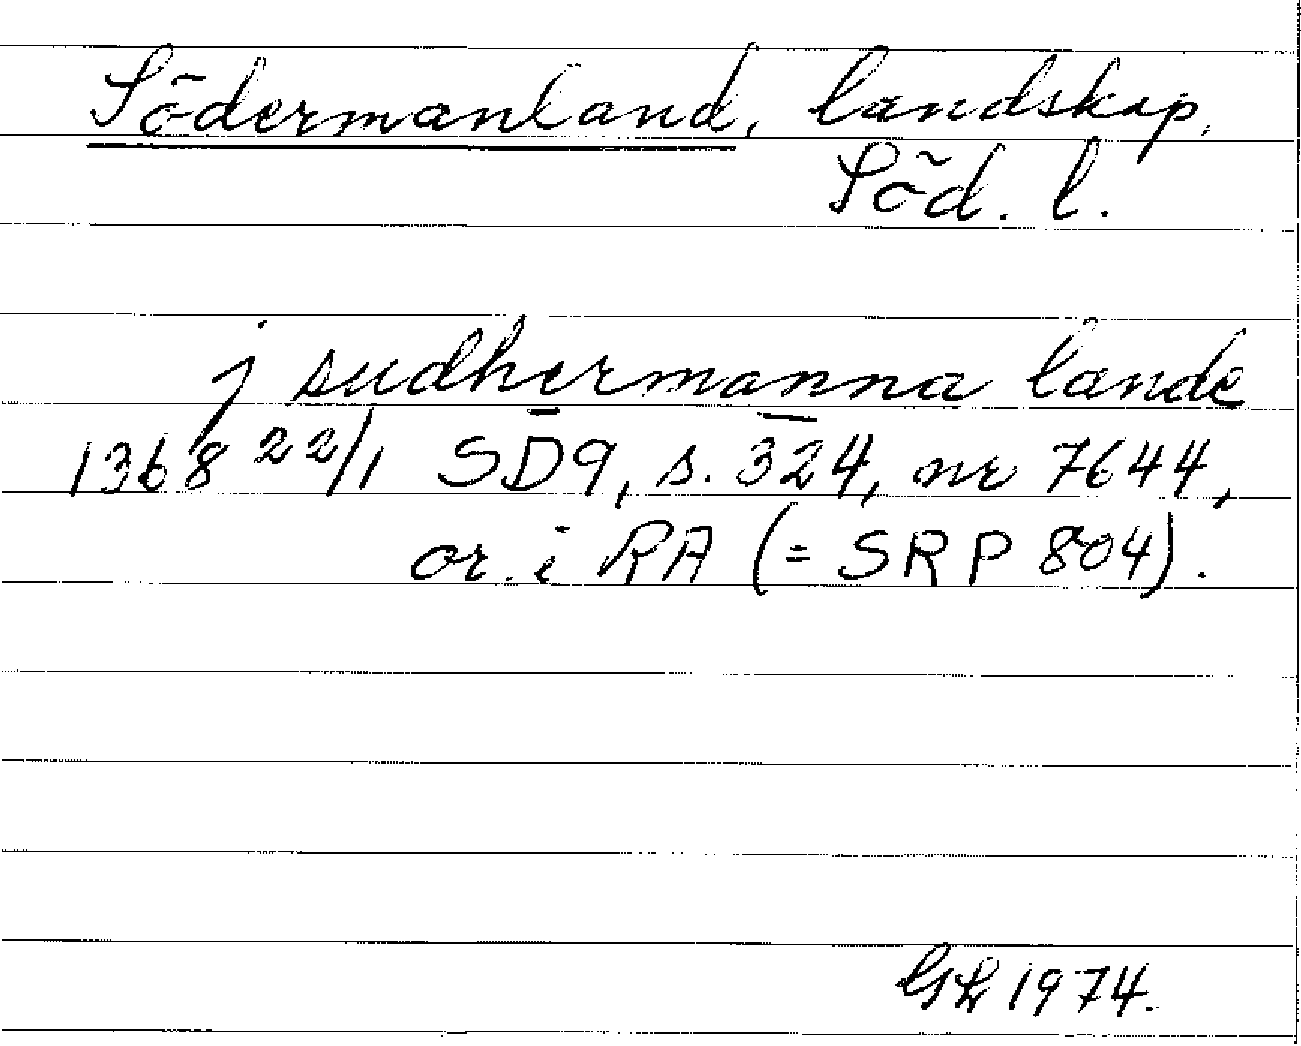 Södermanland, landskap,
Söd. l.
j sudhermanna lande
1368 22/1 SD9, s. 324, nr 7644,
or. i RA (= SRP 804).
GL 1974.